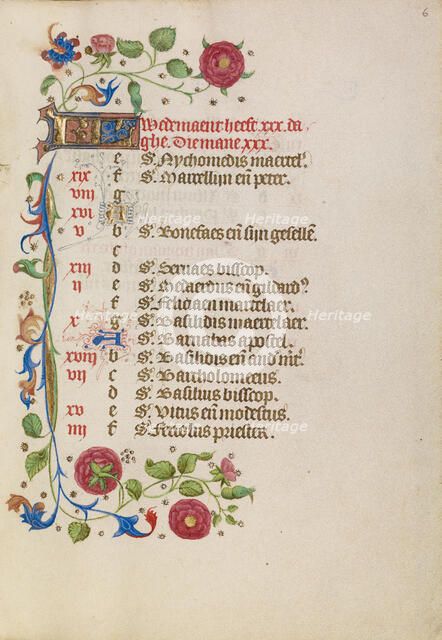 6
Wedmaent heeft xxx. da
ghe. Die mane xxx.
e S. Nychomedis maertel.
xix f S. Marcellijn en peter.
viii g
xvi A
v b S. Bonefaes en sijn gesellen.
c
xiii d S. Seruaes bisscop.
ii e S. en gildard.
f S. Felic en martelaer.
x g S. Basilidis maertelaer.
A S. Barnabas apostel.
xviii b S. Basilidis en
vii c S. Bartholomeus.
d S. Basilius bisscop.
xv e S. Vitus en modestus.
iiii f S. priester.
Heritage
Heritage
Heritage
Heritage
Heritage